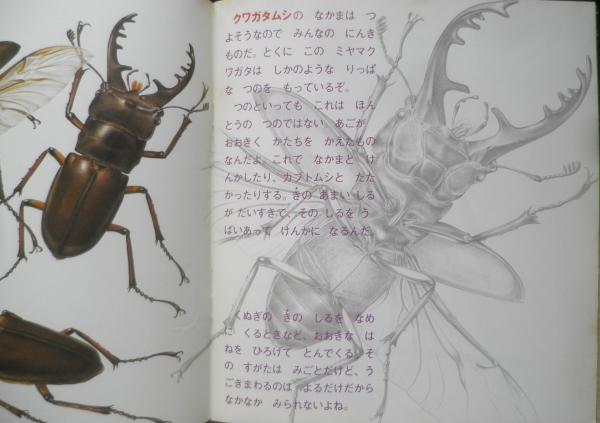 クワガタムシの なかまは つ
よそうなので みんなの にんき
ものだ。とくに この ミヤマク
ワガタは しかのような りっぱ
な つのを もっているぞ。
つのといっても これは ほん
とうの つのではない。あごが
おおきく かたちを かえたもの
なんだよ。これで なかまと け
んかしたり、カブトムシと たた
かったりする。きの あまい しる
が だいすきで、その しるを う
ばいあって けんかに なるんだ。
くぬぎの きの しるを なめ
に くるときなど、おおきな は
ねを ひろげて とんでくる。そ
の すがたは みごとだけど、う
ごきまわるのは よるだけだから
なかなか みられないよね。